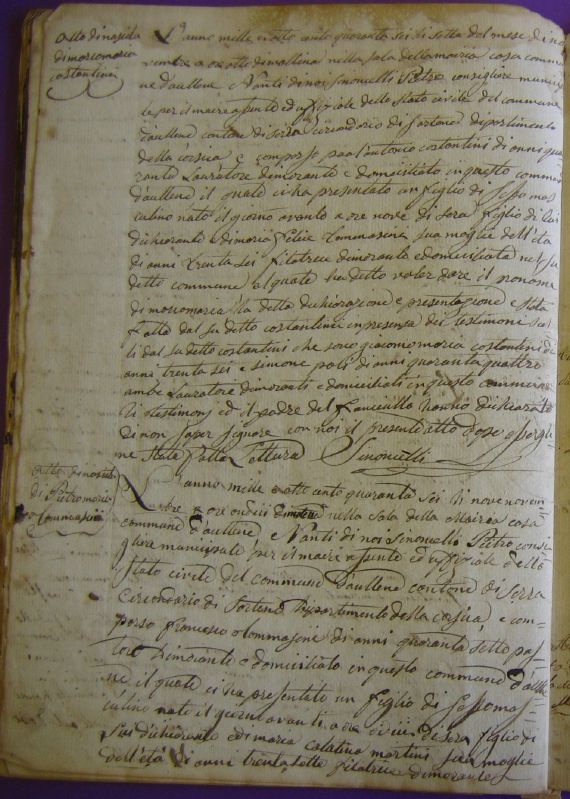 Atto di nascita
di marcomaria
costantini
L'anno mille e otto cento quaranta sei li sette del mese di no
vembre a ore otto di mattina nella sala della mairia casa comu
ne d'aullene, e Vanti di noi Simoncelli Pietro consigliere munici
le per il maire assente ed uffiziale dello stato civile del commune
d'aullene cantone di serra circondario di sartene dipartimento
della corsica è comparso paol'antonio costantini di anni qua
ranta Lauratore dimorante e domiciliato in questo commune
d'aullene il quale ci ha presentato un figlio di sesso mas
culino nato il giorno avanti a ore nove di sera figlio di lui
dichiarante e di maria felice tommasini sua moglie dell'età
di anni trenta sei filatrice dimorante e domiciliata nel su
detto commune al quale ha detto voler dare il pronome
di marcomaria la detta dichiarazione e presentazione e stata
fatta dal su detto costantini in presenza dei testimone
ti dal su detto costantini che sono giacomomaria costantini di
anni trenta sei e simone poli di anni quaranta quattro
ambe Lauratore dimoranti e domiciliati in questo commune
li testimonj ed il padre del fanciullo hanno dichiarato
di non saper signare con noi il presente atto dopo esserg
ne state fatta Lettura Simoncelli
atto di nascita
di Pietromaria
tommasini
L'anno mille e otto cento quaranta sei li nove novem
bre a ore undici di nella sala della Mairia casa
commune d'aullene e Vanti di noi Simoncelli Pietro consi
gliere municipale per il maire assente ed uffiziale dello
stato civile del commune d'aullene cantone di serra
circondario di sartene Dipartimento della corsica, e com
parso francesco tommasini di anni quaranta sette pas
tore Dimorante e domiciliato in questo commune d'aulle
ne il quale ci ha presentato un figlio di sesso mas
culino nato il giorno avanti a ore di sera figlio di
lui dichiarante e di maria catalina martini sua moglie
dell'età di anni trenta sette filatrice dimorante